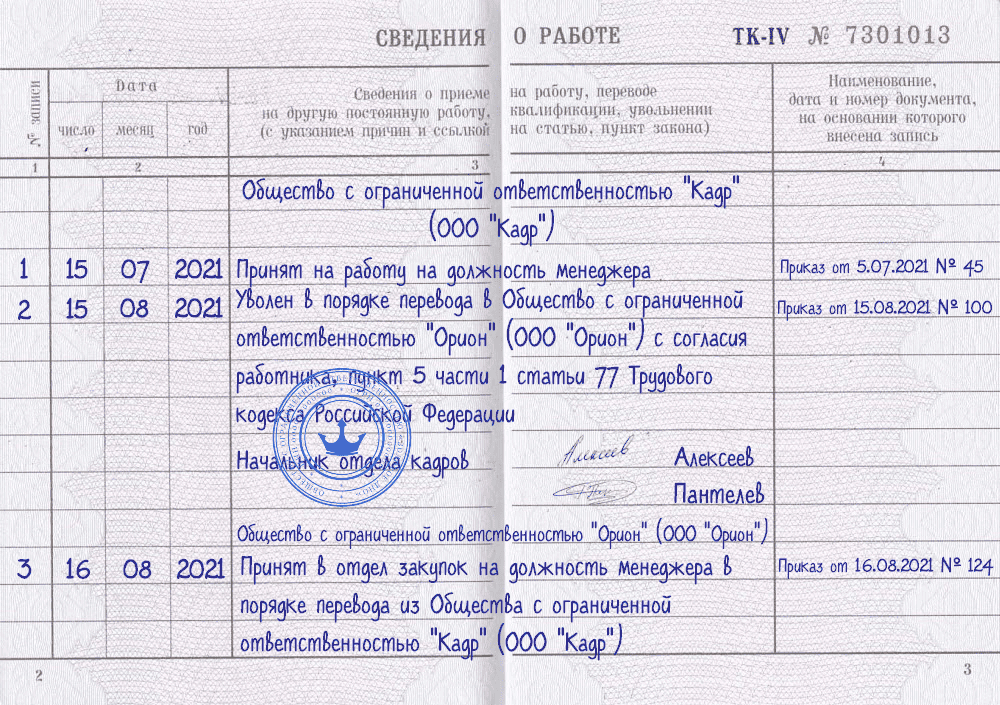 СВЕДЕНИЯ О РАБОТЕ ТК-IV № 7301013
№ записи
Дата
число месяц год
Сведения о приеме на работу, переводе
на другую постоянную работу, квалификации, увольнении
(с указанием причин и ссылкой на статью, пункт закона)
Наименование,
дата и номер документа,
на основании которого
внесена запись
1 2 3 4
Общество с ограниченной ответственностью "Кадр"
(ООО "Кадр")
1 15 07 2021 Принят на работу на должность менеджера Приказ от 5.07.2021 № 45
2 15 08 2021 Уволен в порядке перевода в Общество с ограниченной Приказ от 15.08.2021 № 100
ответственностью "Орион" (ООО "Орион") с согласия
работника, пункт 5 части 1 статьи 77 Трудового
кодекса Российской Федерации
Начальник отдела кадров Алексеев Алексеев
Пантелев
Общество с ограниченной ответственностью "Орион" (ООО "Орион")
3 16 08 2021 Принят в отдел закупок на должность менеджера в Приказ от 16.08.2021 № 124
порядке перевода из Общества с ограниченной
ответственностью "Кадр" (ООО "Кадр")
2 3